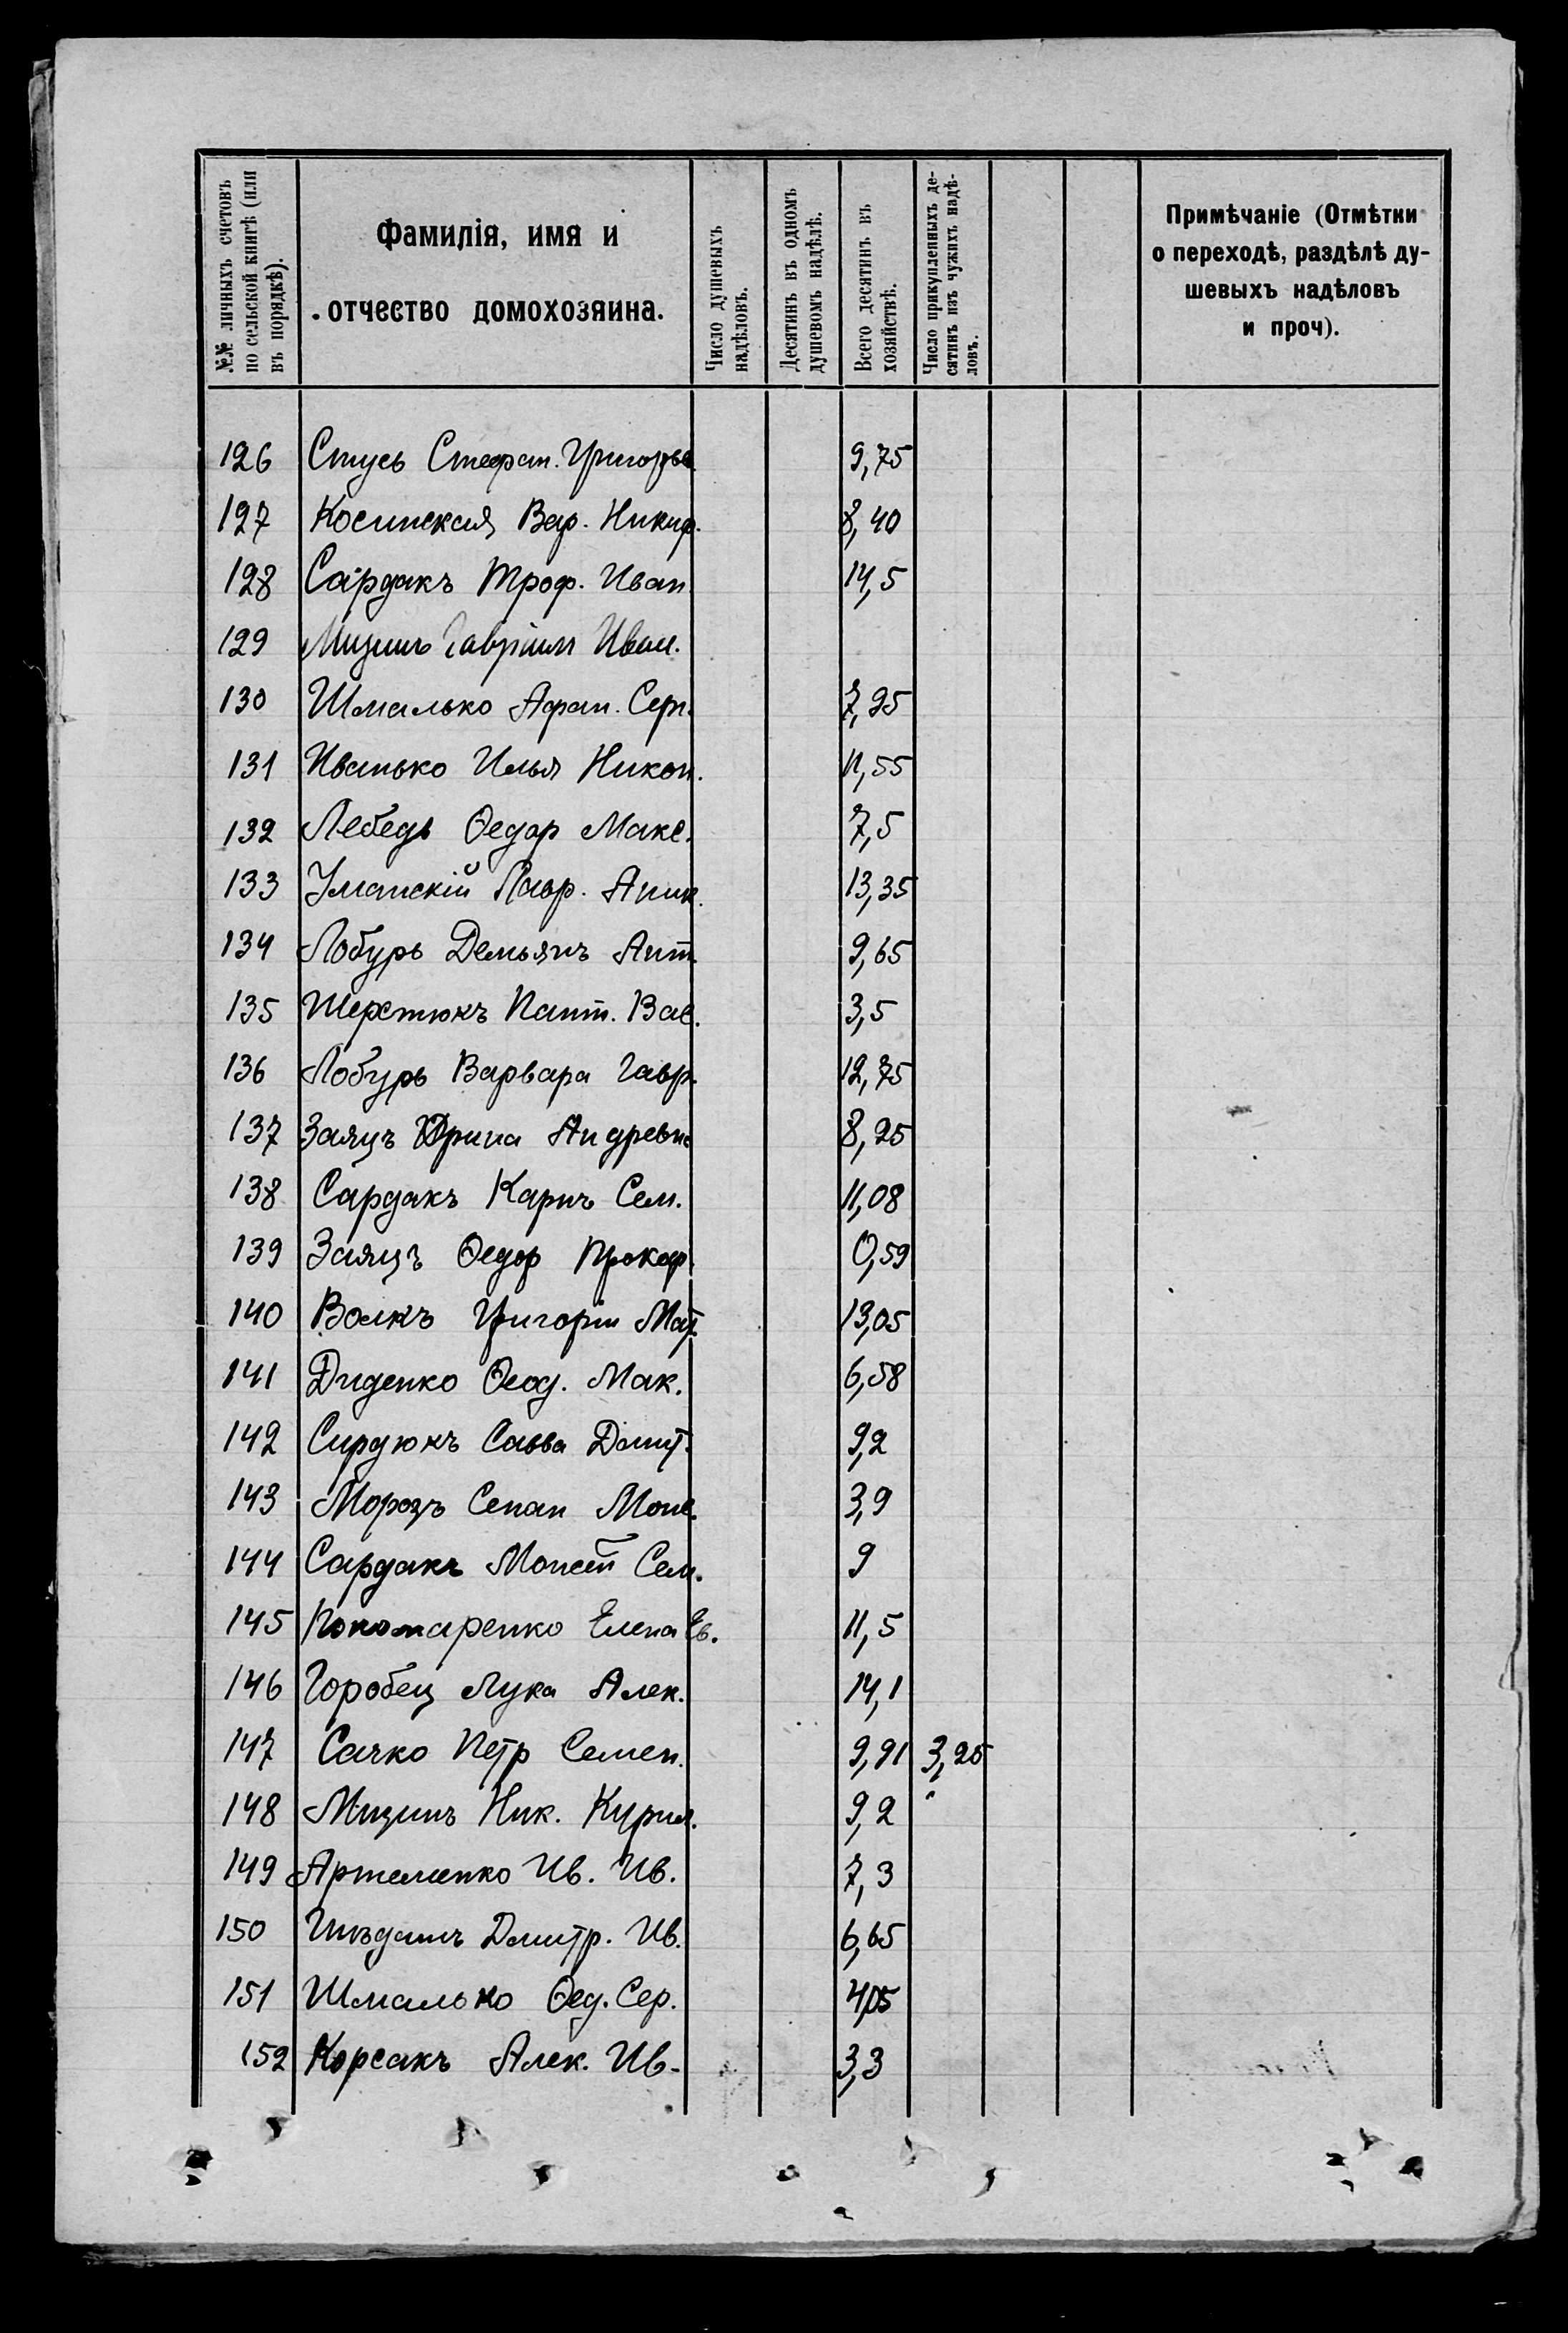 №№ личныхъ счетовъ
по сельской книгѣ (или
въ порядкѣ).
Фамилія, имя и
отчество домохозяина.
Число душевыхъ
надѣловъ.
Десятинъ въ одномъ
душевомъ надѣлѣ.
Всего десятинъ въ
хозяйствѣ.
Число прикупленныхъ де-
сятинъ изъ чужихъ надѣ-
ловъ.
Примѣчаніе (Отмѣтки
о переходѣ, раздѣлѣ ду-
шевыхъ надѣловъ
и проч).
126 Стусь Стефан. Григорьев 9,75
127 Косинская Вар. Никиф. 8,40
128 Сардакъ Троф. Иван 14,5
129 Мизинъ Гавріилъ Иван.
130 Шмалько Афан. Серг. 7,25
131 Иванько Илья Никон. 11,55
132 Лебедь Ѳедор Макс. 7,5
133 Уманскій Лавр. Аник. 13,35
134 Лобурь Демьянъ Ант. 9,65
135 Шерстюкъ Пант. Вас. 3,5
136 Лобурь Варвара Гавр. 12,75
137 Заяцъ Ирина Андревн. 8,25
138 Сардакъ Карпъ Сем. 11,08
139 Заяцъ Ѳедор Прокоф. 0,59
140 Волкъ Григорій Мат. 13,05
141 Диденко Ѳеод. Мак. 6,58
142 Сердюкъ Савва Дмит. 9,2
143 Морозъ Сепан Моис. 3,9
144 Сардакъ Моисей Сем. 9
145 Пономаренко Елена Ев. 11,5
146 Горобец Лука Алек. 14,1
147 Сачко Петр Семен. 9,91 3,25
148 Мизинъ Ник. Кирил. 9,2
149 Артеменко Ив. Ив. 7,3
150 Дмитр. Ив. 6,65
151 Шмалько Ѳед. Сер. 4,05
152 Корсакъ Алек. Ив. 3,3